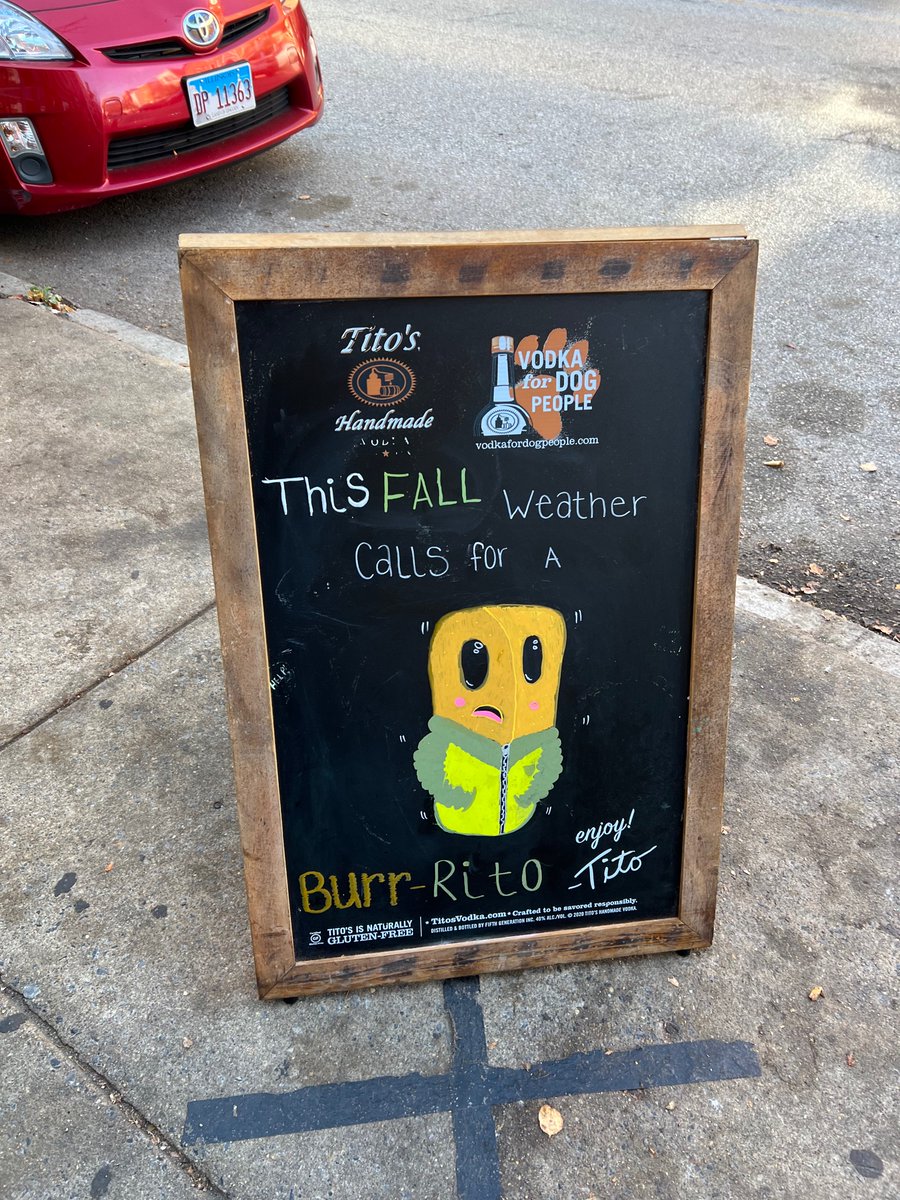 DP 11363
Tito's
Handmade
VODKA
VODKA
for DOG
PEOPLE
vodkafordogpeople.com
THiS FALL Weather
CaLLS for A
HELP!
Burr-RiTO
enjoy!
-Tito
TITO'S IS NATURALLY
GLUTEN-FREE
• TitosVodka.com • Crafted to be savored responsibly.
DISTILLED & BOTTLED BY FIFTH GENERATION INC. 40% ALC./VOL. © 2020 TITO'S HANDMADE VODKA.